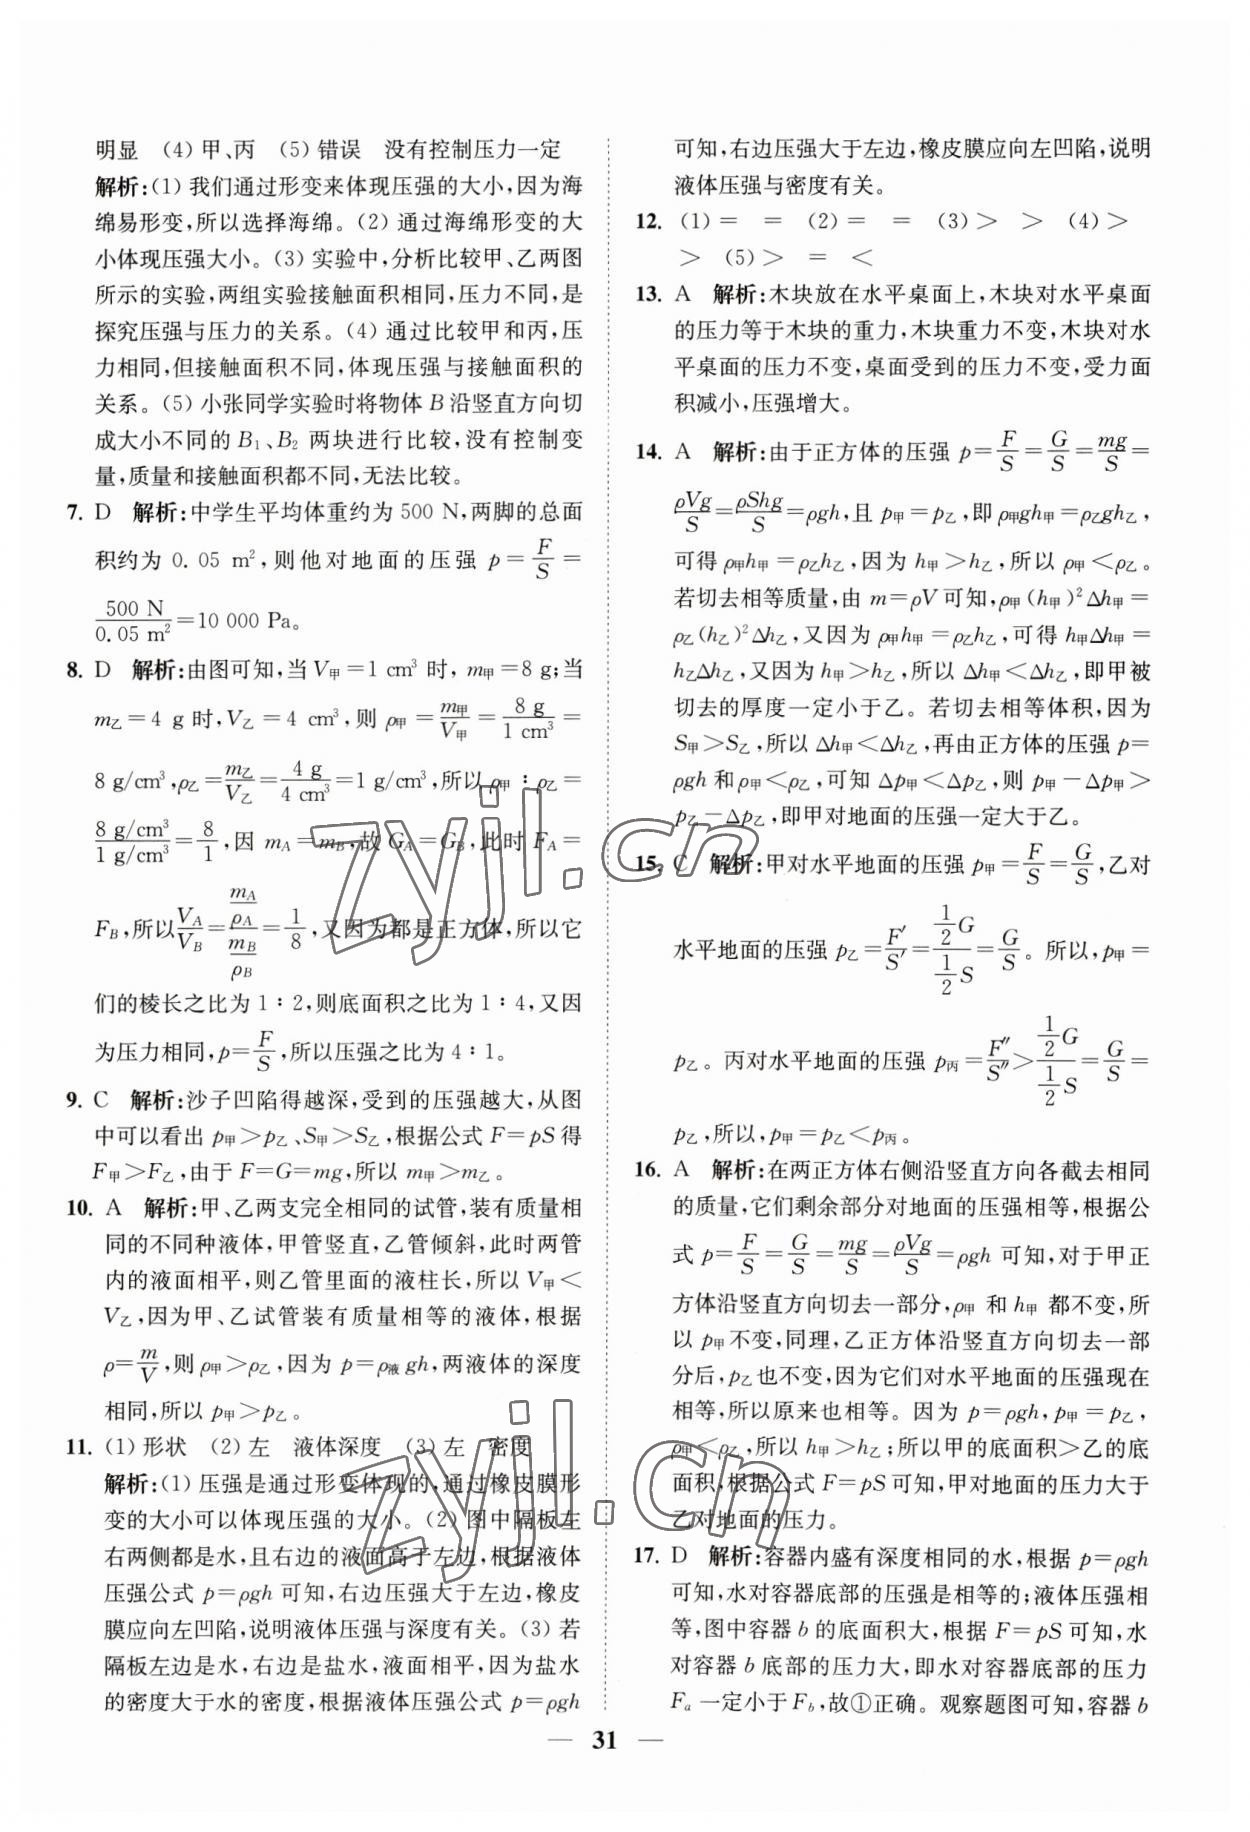 明显 (4)甲、丙 (5)错误 没有控制压力一定
解析:(1)我们通过形变来体现压强的大小,因为海
绵易形变,所以选择海绵。(2)通过海绵形变的大
小体现压强大小。(3)实验中,分析比较甲、乙两图
所示的实验,两组实验接触面积相同,压力不同,是
探究压强与压力的关系。(4)通过比较甲和丙,压
力相同,但接触面积不同,体现压强与接触面积的
关系。(5)小张同学实验时将物体 B 沿竖直方向切
成大小不同的 B₁、B₂ 两块进行比较,没有控制变
量,质量和接触面积都不同,无法比较。
7. D 解析:中学生平均体重约为 500 N,两脚的总面
积约为 0.05 m²,则他对地面的压强 p=F/S=
500 N/0.05 m²=10 000 Pa。
8. D 解析:由图可知,当 V甲=1 cm³ 时,m甲=8 g;当
m乙=4 g 时,V乙=4 cm³,则 ρ甲=m甲/V甲=8 g/1 cm³=
8 g/cm³,ρ乙=m乙/V乙=4 g/4 cm³=1 g/cm³,所以 ρ甲∶ρ乙=
8 g/cm³/1 g/cm³=8/1,因 mA=mB,故 GA=GB,此时 FA=
FB,所以VA/VB=(mA/ρA)/(mB/ρB)=1/8,又因为都是正方体,所以它
们的棱长之比为 1∶2,则底面积之比为 1∶4,又因
为压力相同,p=F/S,所以压强之比为 4∶1。
9. C 解析:沙子凹陷得越深,受到的压强越大,从图
中可以看出 p甲>p乙、S甲>S乙,根据公式 F=pS 得
F甲>F乙,由于 F=G=mg,所以 m甲>m乙。
10. A 解析:甲、乙两支完全相同的试管,装有质量相
同的不同种液体,甲管竖直,乙管倾斜,此时两管
内的液面相平,则乙管里面的液柱长,所以 V甲<
V乙,因为甲、乙试管装有质量相等的液体,根据
ρ=m/V,则 ρ甲>ρ乙,因为 p=ρ液gh,两液体的深度
相同,所以 p甲>p乙。
11. (1)形状 (2)左 液体深度 (3)左 密度
解析:(1)压强是通过形变体现的,通过橡皮膜形
变的大小可以体现压强的大小。(2)图中隔板左
右两侧都是水,且右边的液面高于左边,根据液体
压强公式 p=ρgh 可知,右边压强大于左边,橡皮
膜应向左凹陷,说明液体压强与深度有关。(3)若
隔板左边是水,右边是盐水,液面相平,因为盐水
的密度大于水的密度,根据液体压强公式 p=ρgh
可知,右边压强大于左边,橡皮膜应向左凹陷,说明
液体压强与密度有关。
12. (1)= = (2)= = (3)> > (4)>
> (5)> = <
13. A 解析:木块放在水平桌面上,木块对水平桌面
的压力等于木块的重力,木块重力不变,木块对水
平桌面的压力不变,桌面受到的压力不变,受力面
积减小,压强增大。
14. A 解析:由于正方体的压强 p=F/S=G/S=mg/S=
ρVg/S=ρShg/S=ρgh,且 p甲=p乙,即 ρ甲gh甲=ρ乙gh乙,
可得 ρ甲h甲=ρ乙h乙,因为 h甲>h乙,所以 ρ甲<ρ乙。
若切去相等质量,由 m=ρV 可知,ρ甲(h甲)²Δh甲=
ρ乙(h乙)²Δh乙,又因为 ρ甲h甲=ρ乙h乙,可得 h甲Δh甲=
h乙Δh乙,又因为 h甲>h乙,所以 Δh甲<Δh乙,即甲被
切去的厚度一定小于乙。若切去相等体积,因为
S甲>S乙,所以 Δh甲<Δh乙,再由正方体的压强 p=
ρgh 和 ρ甲<ρ乙,可知 Δp甲<Δp乙,则 p甲-Δp甲>
p乙-Δp乙,即甲对地面的压强一定大于乙。
15. C 解析:甲对水平地面的压强 p甲=F/S=G/S,乙对
水平地面的压强 p乙=F′/S′=(1/2 G)/(1/2 S)=G/S。所以,p甲=
p乙。丙对水平地面的压强 p丙=F″/S″>(1/2 G)/(1/2 S)=G/S=
p乙,所以,p甲=p乙<p丙。
16. A 解析:在两正方体右侧沿竖直方向各截去相同
的质量,它们剩余部分对地面的压强相等,根据公
式 p=F/S=G/S=mg/S=ρVg/S=ρgh 可知,对于甲正
方体沿竖直方向切去一部分,ρ甲 和 h甲 都不变,所
以 p甲不变,同理,乙正方体沿竖直方向切去一部
分后,p乙也不变,因为它们对水平地面的压强现在
相等,所以原来也相等。因为 p=ρgh,p甲=p乙,
ρ甲<ρ乙,所以 h甲>h乙;所以甲的底面积>乙的底
面积,根据公式 F=pS 可知,甲对地面的压力大于
乙对地面的压力。
17. D 解析:容器内盛有深度相同的水,根据 p=ρgh
可知,水对容器底部的压强是相等的;液体压强相
等,图中容器 b 的底面积大,根据 F=pS 可知,水
对容器 b 底部的压力大,即水对容器底部的压力
Fa 一定小于 Fb,故①正确。观察题图可知,容器 b
— 31 —
zyjl.cn
zyjl.cn